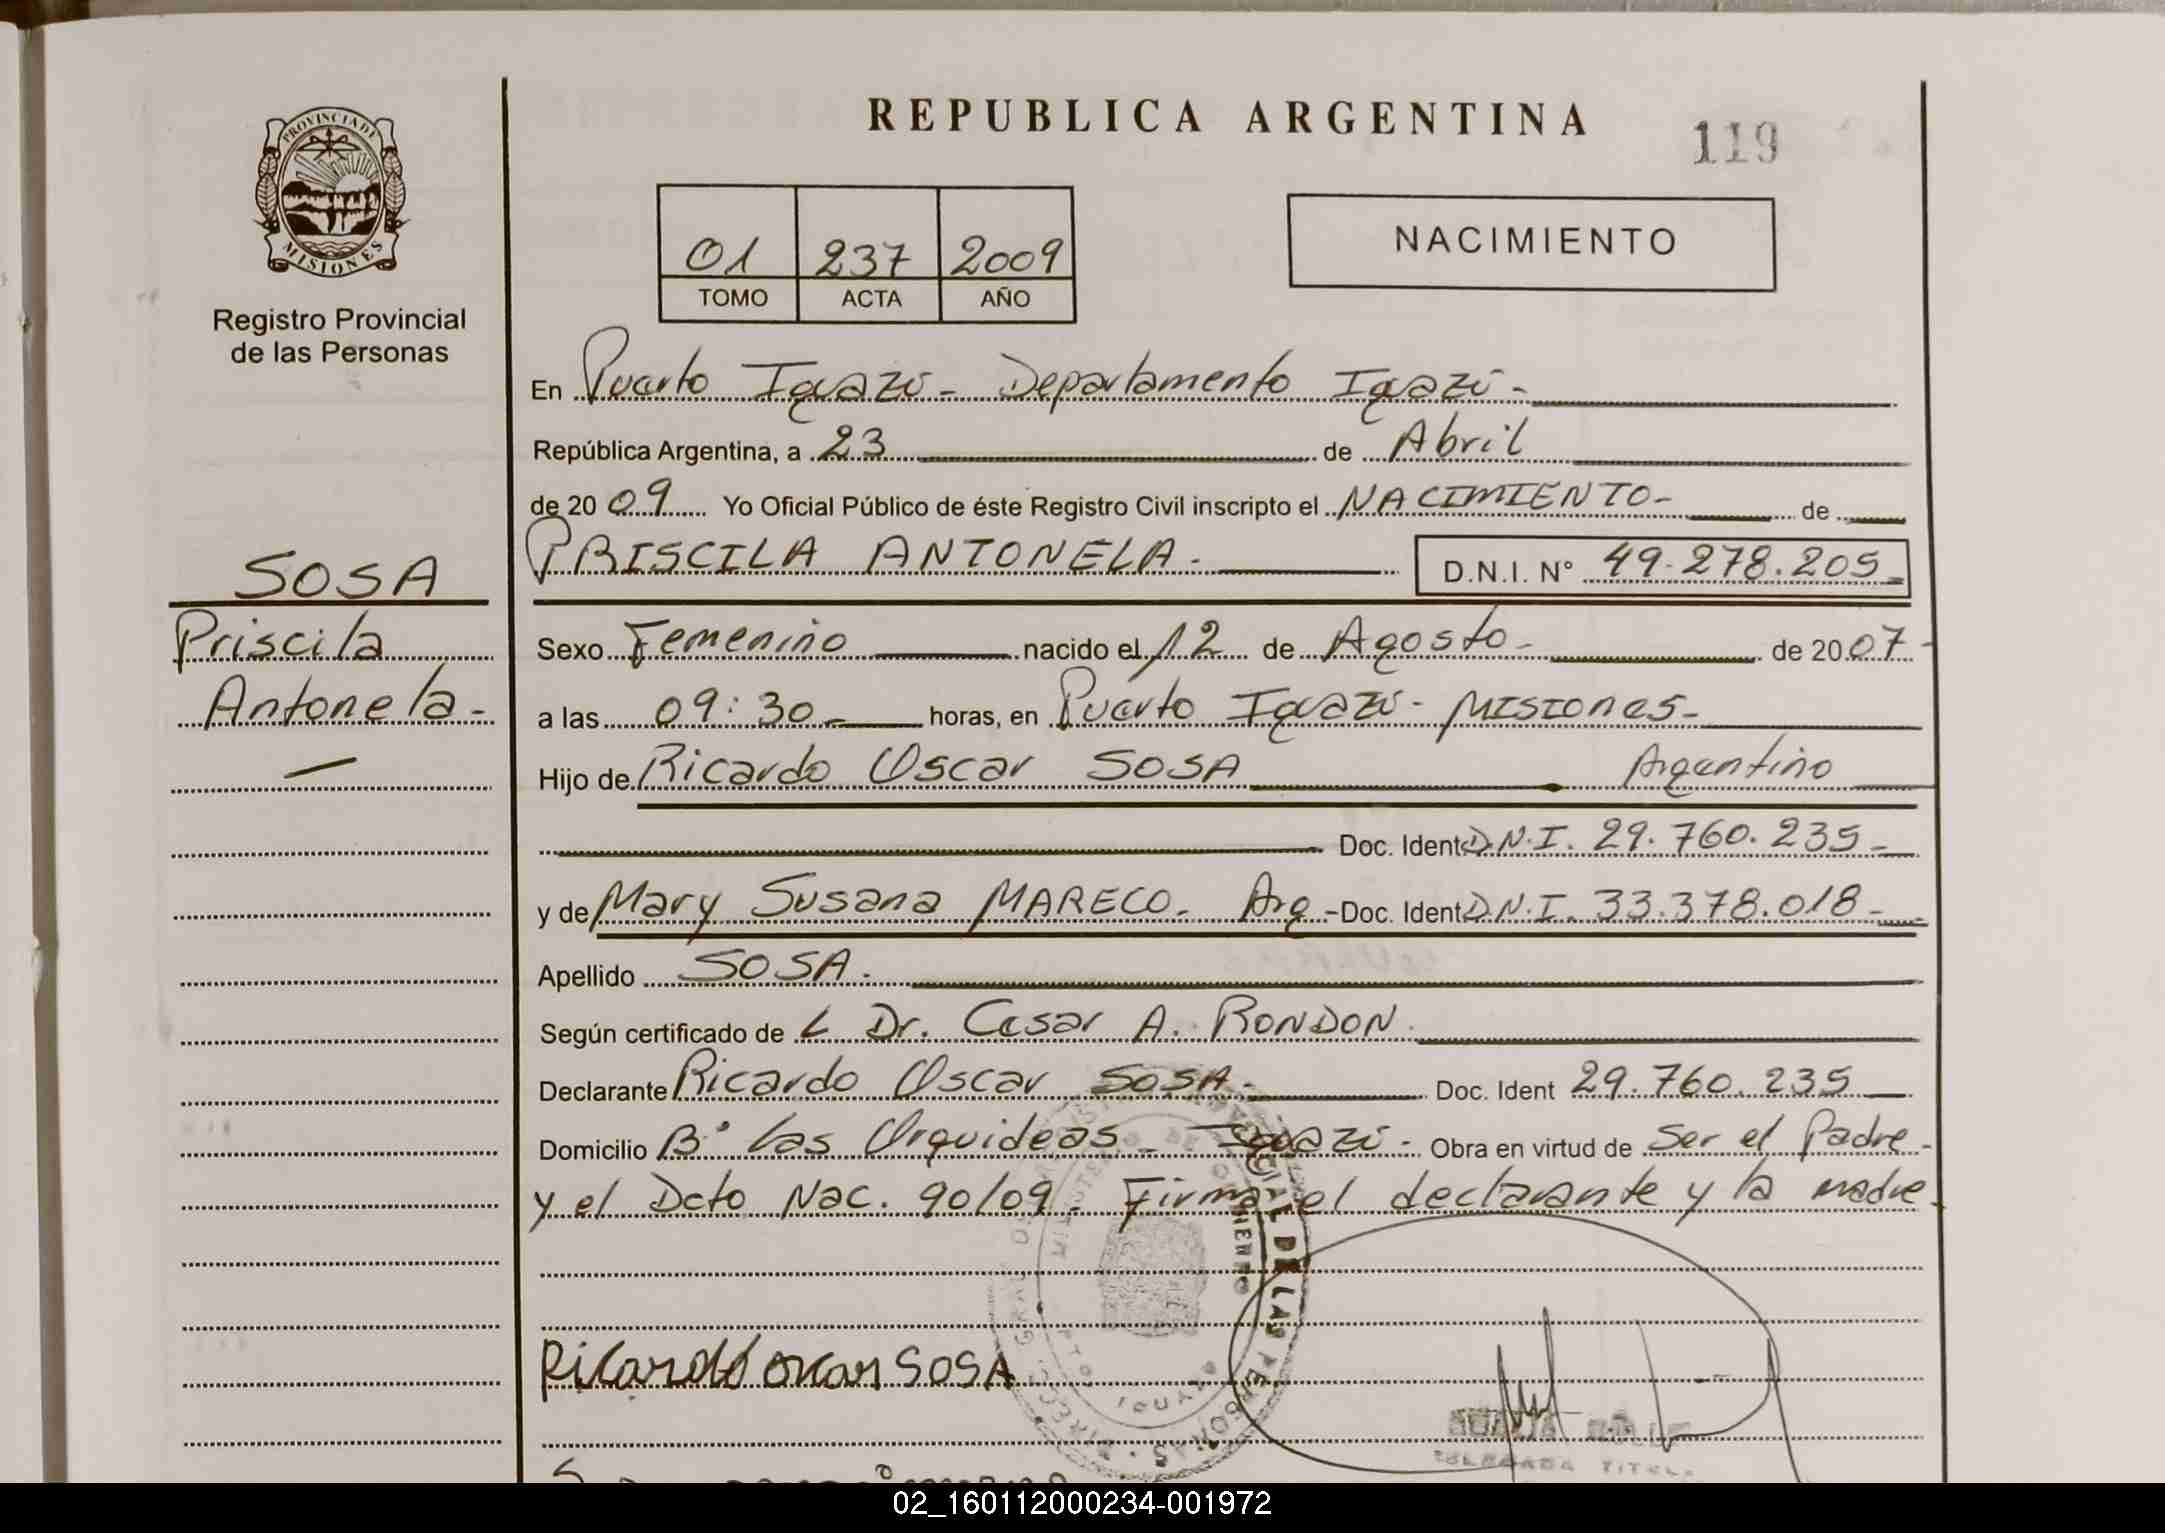 REPUBLICA ARGENTINA
119
PROVINCIA DE
MISIONES
Registro Provincial
de las Personas
01 237 2009
TOMO ACTA AÑO
NACIMIENTO
En Puerto Iguazú - Departamento Iguazú -
República Argentina, a 23 de Abril
de 2009 Yo Oficial Público de éste Registro Civil inscripto el NACIMIENTO - de
PRISCILA ANTONELA. D.N.I. N° 49.278.205
SOSA
Priscila
Antonela -
Sexo Femenino nacido el 12 de Agosto - de 2007 -
a las 09:30 horas, en Puerto Iguazú - Misiones -
Hijo de Ricardo Oscar SOSA Argentino
Doc. Ident D.N.I. 29.760.235 -
y de Mary Susana MARECO. Arg - Doc. Ident D.N.I. 33.378.018 -
Apellido SOSA.
Según certificado de L Dr. Cesar A. RONDON.
Declarante Ricardo Oscar SOSA. Doc. Ident 29.760.235
Domicilio B° Las Orquideas - Iguazú - Obra en virtud de Ser el Padre -
y el Dcto Nac. 90/09. Firman el declarante y la madre.
Ricardo oscar SOSA
02_160112000234-001972